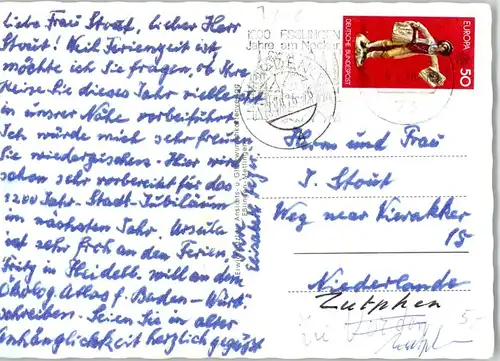 Liebe Frau Stout, lieber Herr
Stout! Weil Ferienzeit ist,
möchte ich Sie fragen, ob Ihre
Reise Sie dieses Jahr vielleicht
in unsrer Nähe vorbeiführt.
Ich würde mich sehr freuen
Sie wiederzusehen. Hier wird
schon sehr vorbereitet für das
1200 Jahr-Stadt-Jubiläum
im nächsten Jahr. Ursula
ist sehr froh an den Ferien.
Fritz in Heidelb. will an dem
Ökolog. Atlas f. Baden-Würt.
schreiben. Seien Sie in alter
Anhänglichkeit herzlich gegrüßt
Ihre
Elisabeth
1200 ESSLINGEN
Jahre am Neckar
DEUTSCHE BUNDESPOST
EUROPA
50
73
Herrn und Frau
J. Stout
Weg naar Vierakker
15
Niederlande
Zutphen